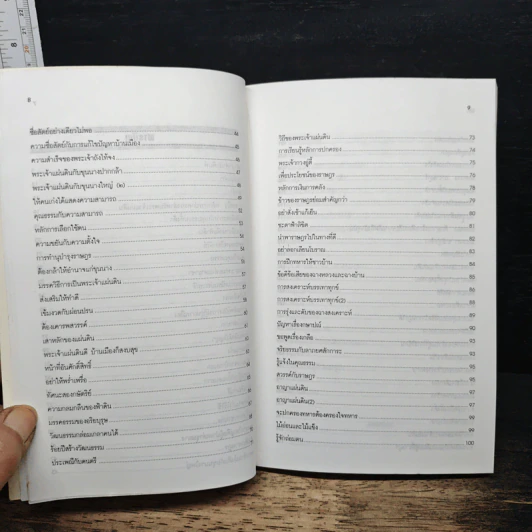 ซื่อสัตย์อย่างเดียวไม่พอ 44
ความซื่อสัตย์กับการแก้ไขปัญหาบ้านเมือง 45
ความสำเร็จของพระเจ้าถังไท่จง 46
พระเจ้าแผ่นดินกับขุนนางปากกล้า 47
พระเจ้าแผ่นดินกับขุนนางใหญ่ 49
ให้คนเก่งได้แสดงความสามารถ 50
คุณธรรมกับความสามารถ 52
หลักการเลือกใช้คน 53
ความขยันกับความตั้งใจ 54
การทำนุบำรุงราษฎร
ต้องกล้าให้อำนาจแก่ขุนนาง
มรรควิธีการเป็นพระเจ้าแผ่นดิน
ส่งเสริมให้ทำดี
เข้มงวดกับผ่อนปรน
ต้องเคารพสวรรค์
เสาหลักของแผ่นดิน
พระเจ้าแผ่นดินดี บ้านเมืองก็สงบสุข
หน้าที่อันศักดิ์สิทธิ์
อย่าพร่ำเพรื่อ
ทัศนะสองกษัตริย์
ความกลมกลืนของฟ้าดิน
มรรคธรรมของอริยบุรุษ
วัฒนธรรมกล่อมเกลาคนได้
ร้อยปีสร้างวัฒนธรรม
ประเพณีกับดนตรี
วิถีของพระเจ้าแผ่นดิน 73
การเรียนรู้หลักการปกครอง 74
พระเจ้ากวงอู่ตี้ 75
เพื่อประโยชน์ของราษฎร 76
หลักการเงินการคลัง 77
ข้าวของราษฎรย่อมสำคัญกว่า 78
อย่าสั่งเช้าแก้เย็น 79
ชะตาฟ้าลิขิต 80
นำพาราษฎรไปในทางที่ดี 81
อย่าลอกเลียนโบราณ 82
การฝึกทหารให้ชาวบ้าน 83
ข้อดีข้อเสียของฉางหลวงและฉางบ้าน 84
การสงเคราะห์บรรเทาทุกข์ 85
การสงเคราะห์บรรเทาทุกข์(2) 86
ปัญหาเรื่องกษาปณ์ 88
ขอพูดเรื่องเกลือ 89
จริยธรรมกับลาภยศสักการะ 90
รู้แจ้งในคุณธรรม
สวรรค์กับราษฎร
อาญาแผ่นดิน 95
อาญาแผ่นดิน(2) 97
จะปกครองทหารต้องครองใจทหาร 98
ไม้อ่อนและไม้แข็ง 99
รู้ซักถ่อมตน 100